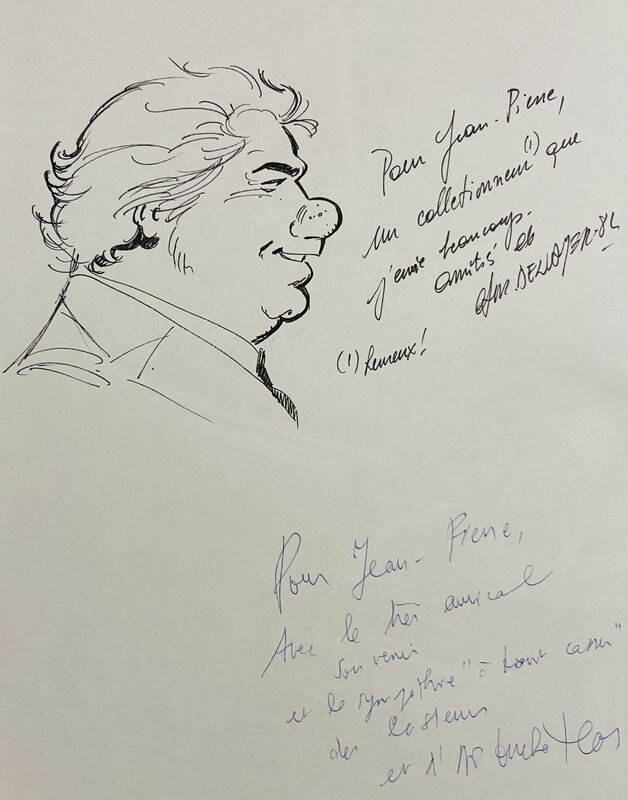 Pour Jean-Pierre,
un colletionneur (1) que
j'envie beaucoup.
amitié de
DENAYER-84
(1) heureux!
Pour Jean-Pierre,
Avec le très amical
souvenir
et la sympathie "à tout casser"
des Casseurs
et d'